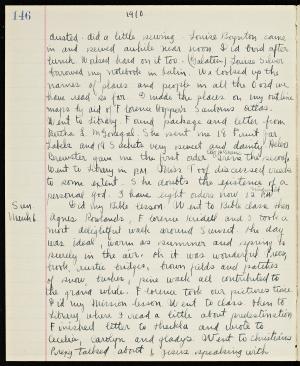 146
1910
dusted - did a little sewing - Louise Boynton came
in and sewed awhile near noon I did brid after
lunch. Worked hard on it too - (Galatin) Louise Silver
borrowed my notebook in Latin. We looked up the
names of places and people in all the Ovid we
have read so far I made the places on my outline
maps by aid of Florence Hopper's Sanborn's Atlas.
Went to Library. Found package and letter from
Bertha L. She sent me 18 Print for
Labels and 18 sachets very sweet and dainty Helen
Brewster gave me the first order
Went to Library in P.M. Miss Toof discussed creeds
to some extent. She doubts the existence of a
personal God. I have eight orders now 12 P.M.
Sun
March 6
Did my Bible lesson. Went to Bible class then
Agnes Rowlands, Florence Kendall and I took a
most delightful walk around Sunset. The day
was ideal, warm as summer and spring is
surely in the air. Oh it was wonderful trees,
brook, rustic bridges, brown fields and patches
of snow, bushes, pine walk all contributed to
the grand whole. Florence took our pictures twice
I did my Mission lesson. Went to class then to
Library where I read a little about predestination
Finished letter to Thekla and wrote to
Cecelia, Carolyn and Gladys. Went to Christians
Prexy talked about & Jesus speaking with